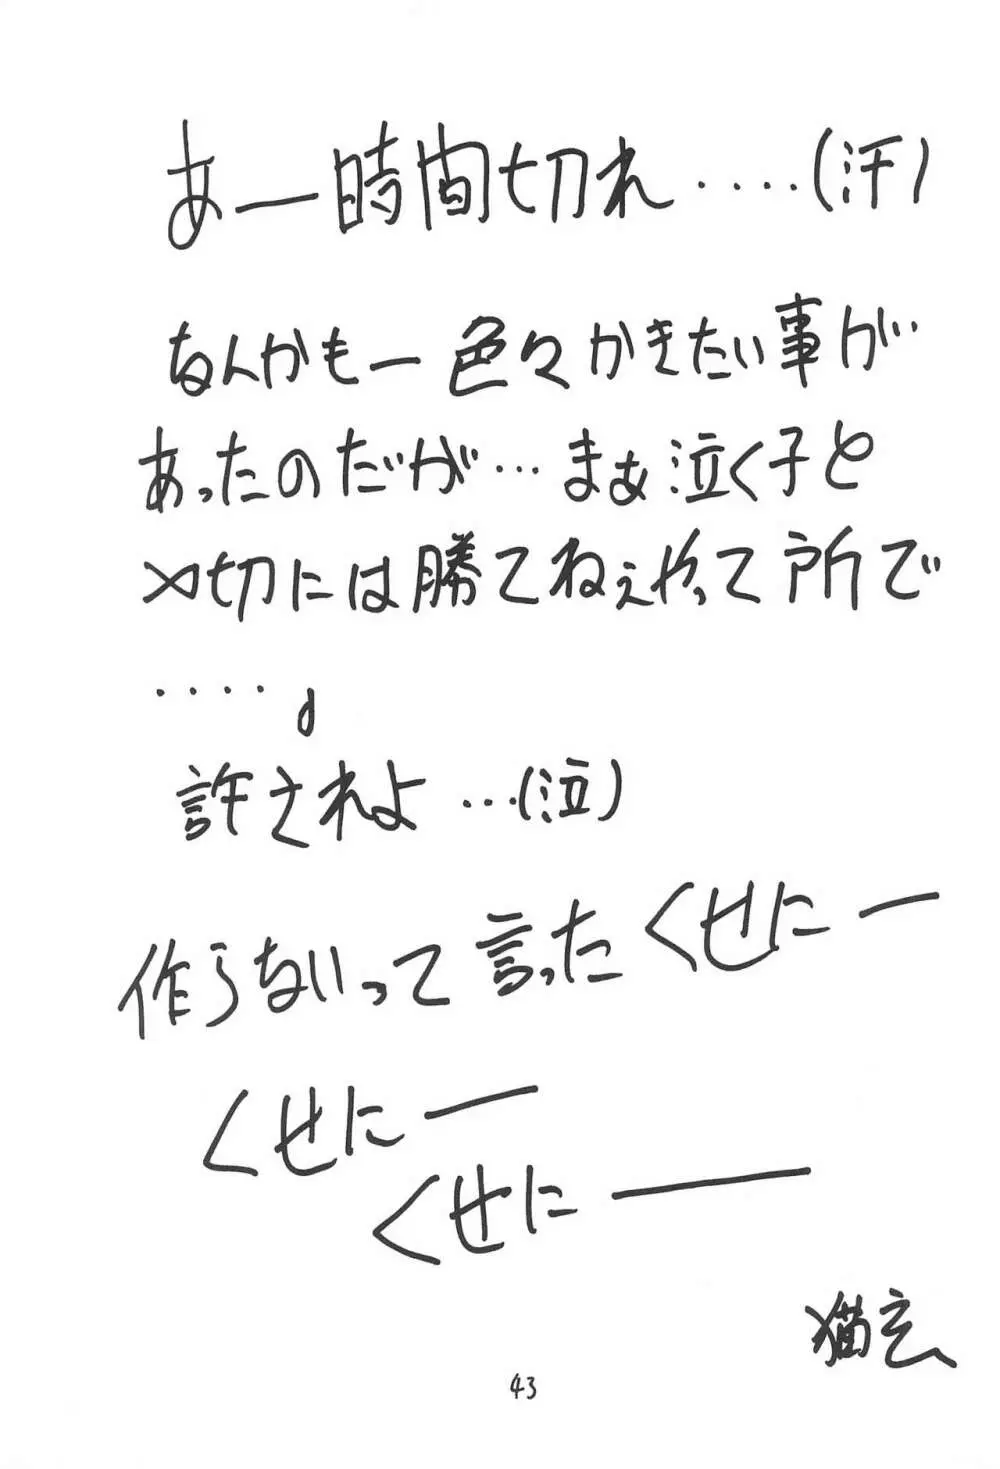 あー時間切れ・・・・・(汗)
なんかもー色々かきたい事が
あったのだが…まぁ泣く子と
〆切には勝てねぇやって所で
・・・・。
許されよ…(泣)
作らないって言ったくせにー
くせにー
くせにー
猫玄
43